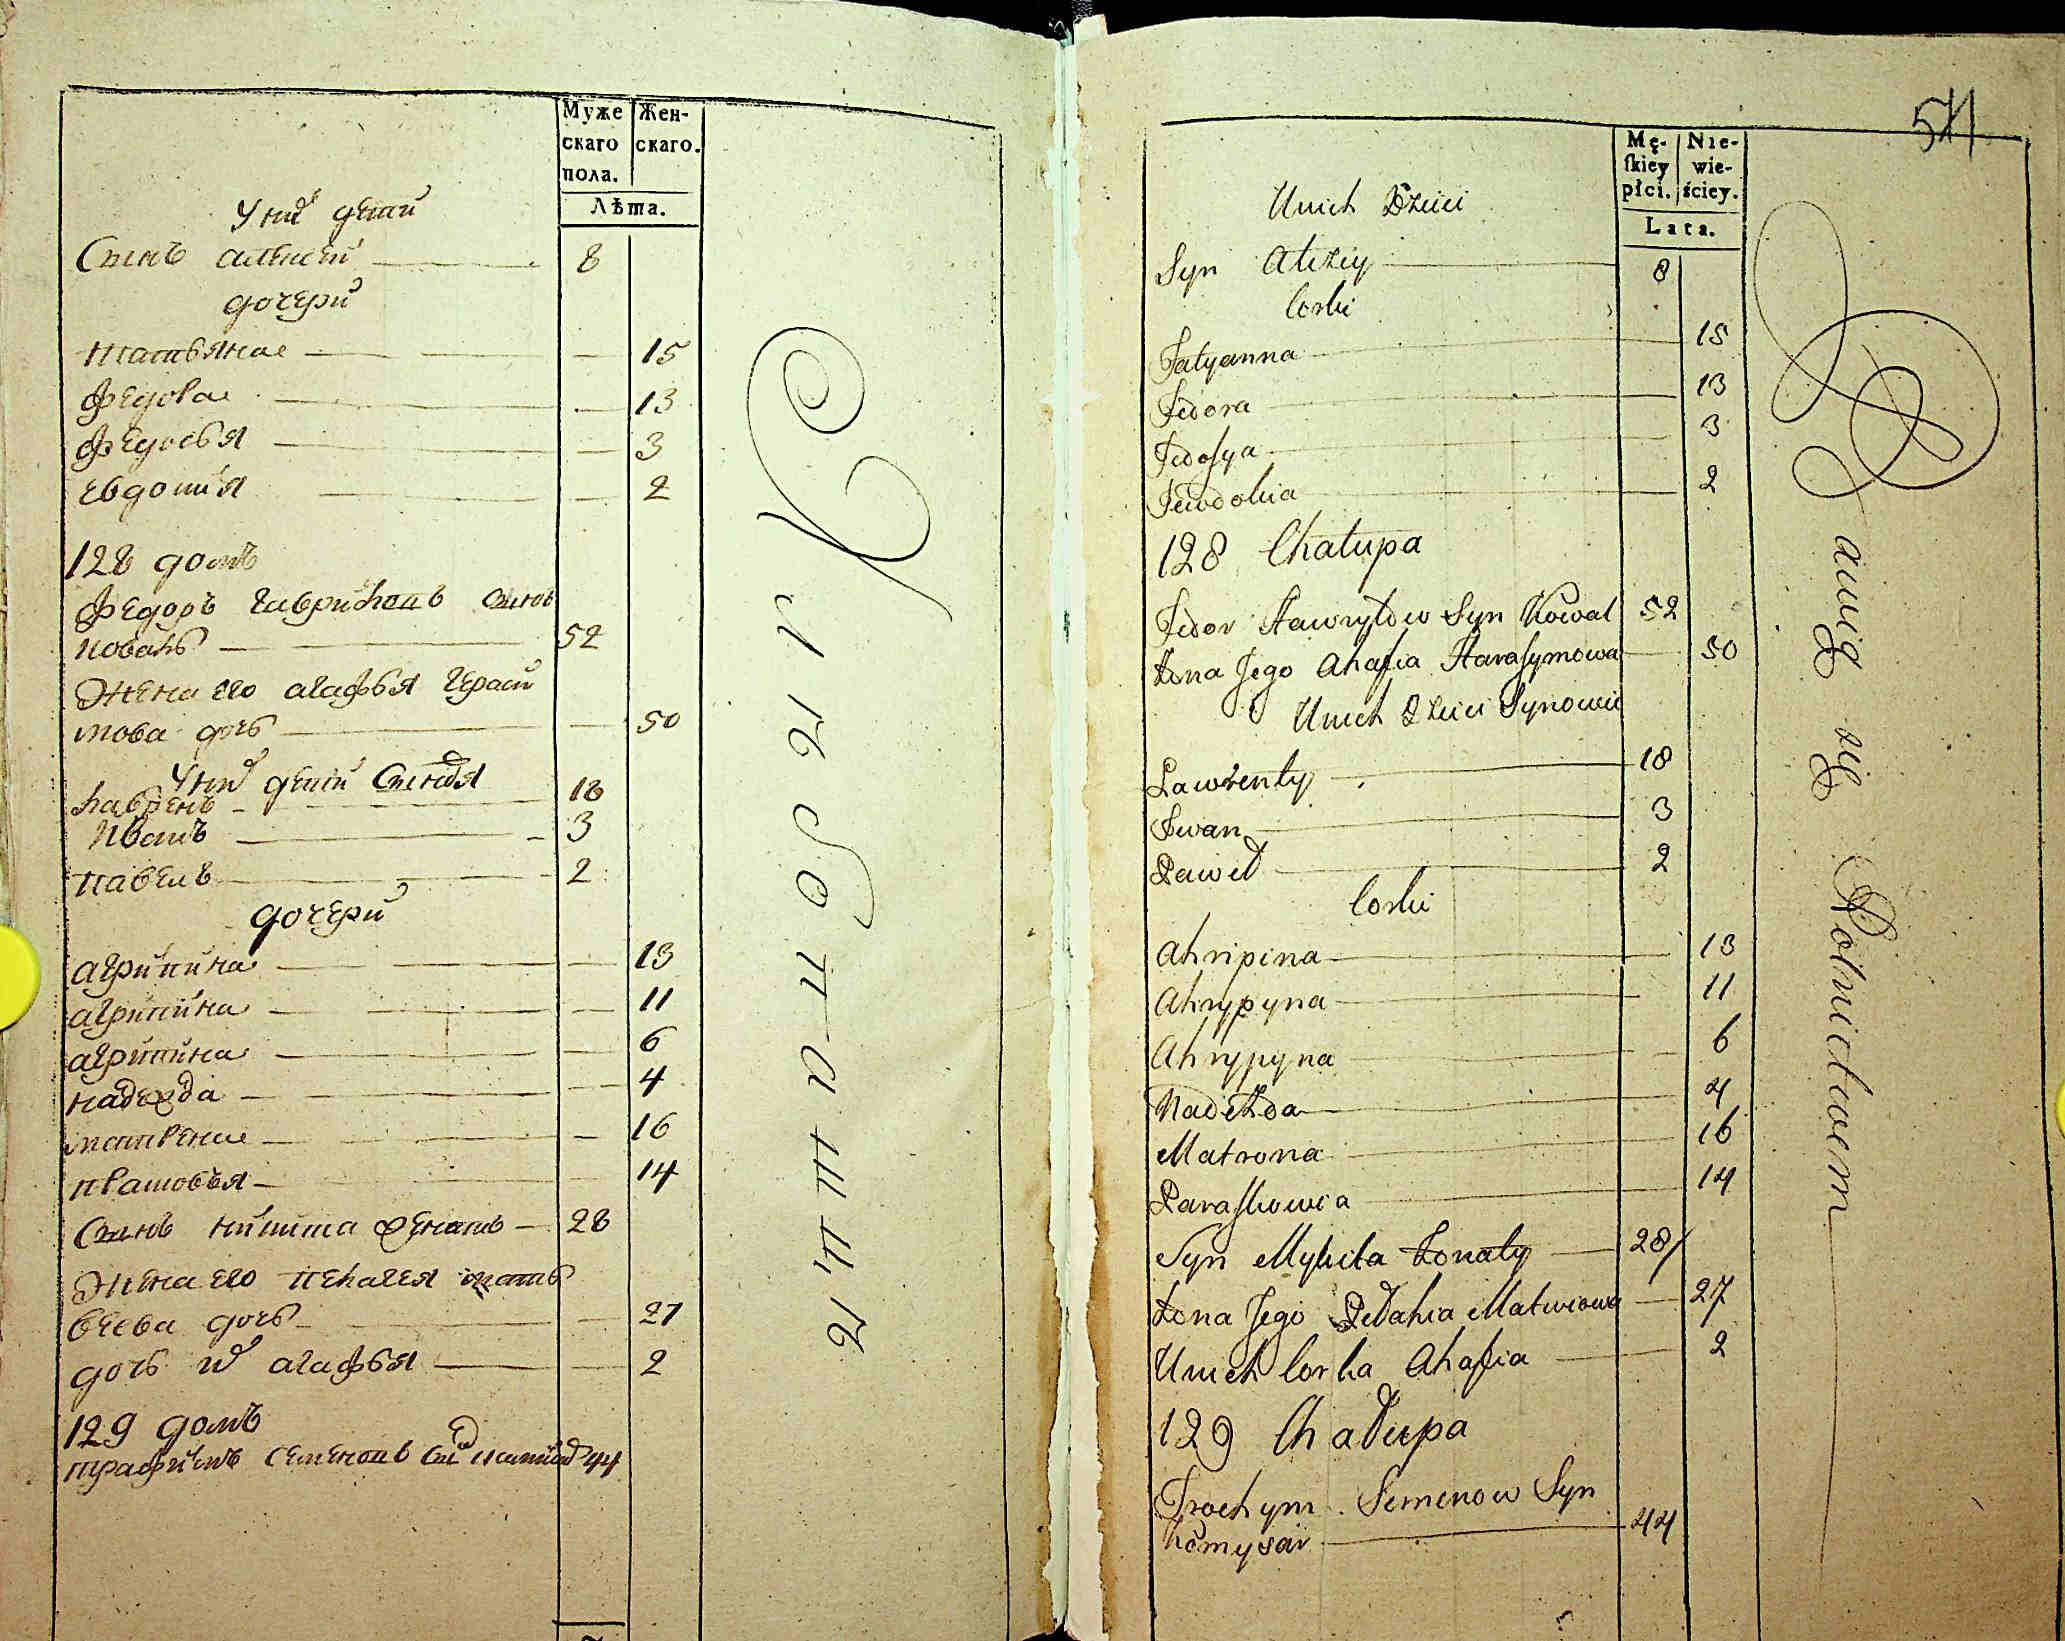 Муже
скаго
пола.
Жен-
скаго.
Лѣта.
У них дети
Сынъ алѣксей 8
дочери
татьяна 15
федора 13
федосья 3
евдокия 2
128 домъ
Федоръ гаврилов сынъ
коваль 52
Жена его агафья Гераси
мова дочь 50
У них дети Сыновья
лаврень 18
Иванъ 3
павелъ 2
дочери
агрипина 13
агрипина 11
агрипина 6
надежда 4
матрена 16
прасковья 14
Сынъ никита женатъ 28
Жена его пелагея матъ
веева дочь 27
дочь их агафья 2
129 домъ
трафимъ Семеновъ 44
54
Mę-
skiey
płci.
Nie-
wie-
ściey.
Lata.
U nich Dzieci
Syn Alexiy 8
Corki
Tatyanna 15
Fedora 13
Fedosya 3
Jewdokia 2
128 Chałupa
Fedor Hawryłow Syn Kowal 52
Żona Jego Ahafia Harasymowa 50
U nich Dzieci Synowie
Lawrenty 18
Iwan 3
Paweł 2
Corki
Ahripina 13
Ahrypyna 11
Ahrypyna 6
Nadeżda 4
Matrona 16
Paraskowia 14
Syn Mykita Żonaty 28
Żona Jego Pełahia Matwiowa 27
U nich Corka Ahafia 2
129 Chałupa
Trochym Semenow Syn
Komysar 44
bawią się Rolnictwem